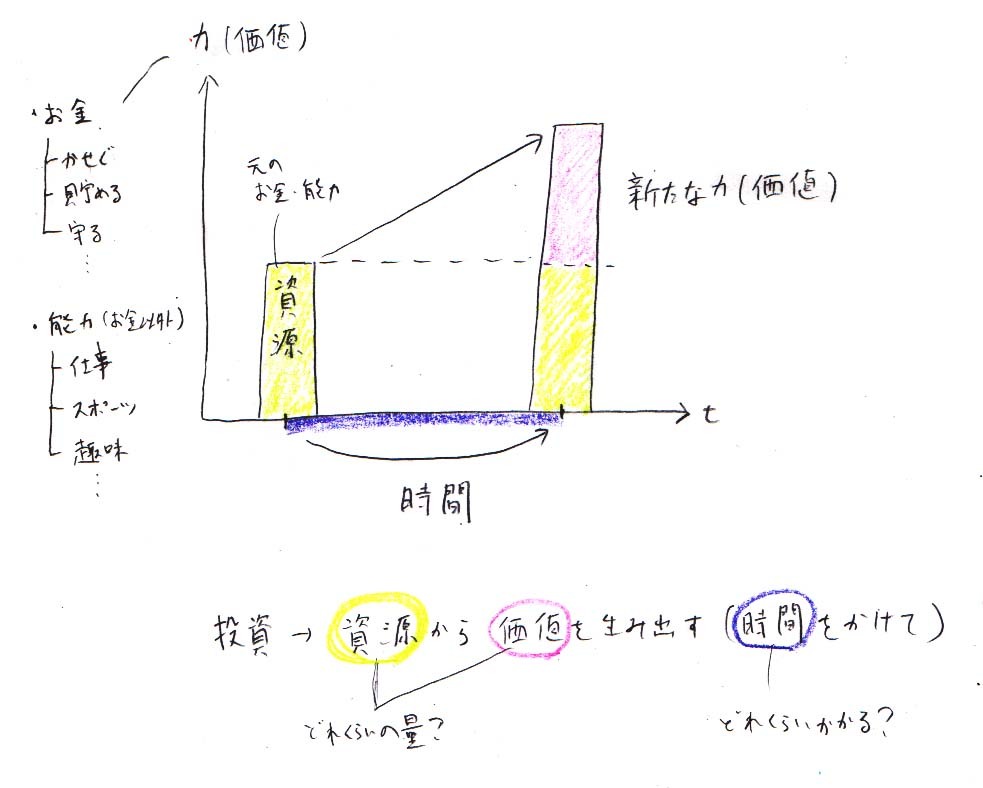 力(価値)
・お金
かせぐ
貯める
守る
⋮
・能力(お金以外)
仕事
スポーツ
趣味
⋮
元の
お金・能力
資源
新たな力(価値)
t
時間
投資→資源から価値を生み出す(時間をかけて)
どれくらいの量?
どれくらいかかる?